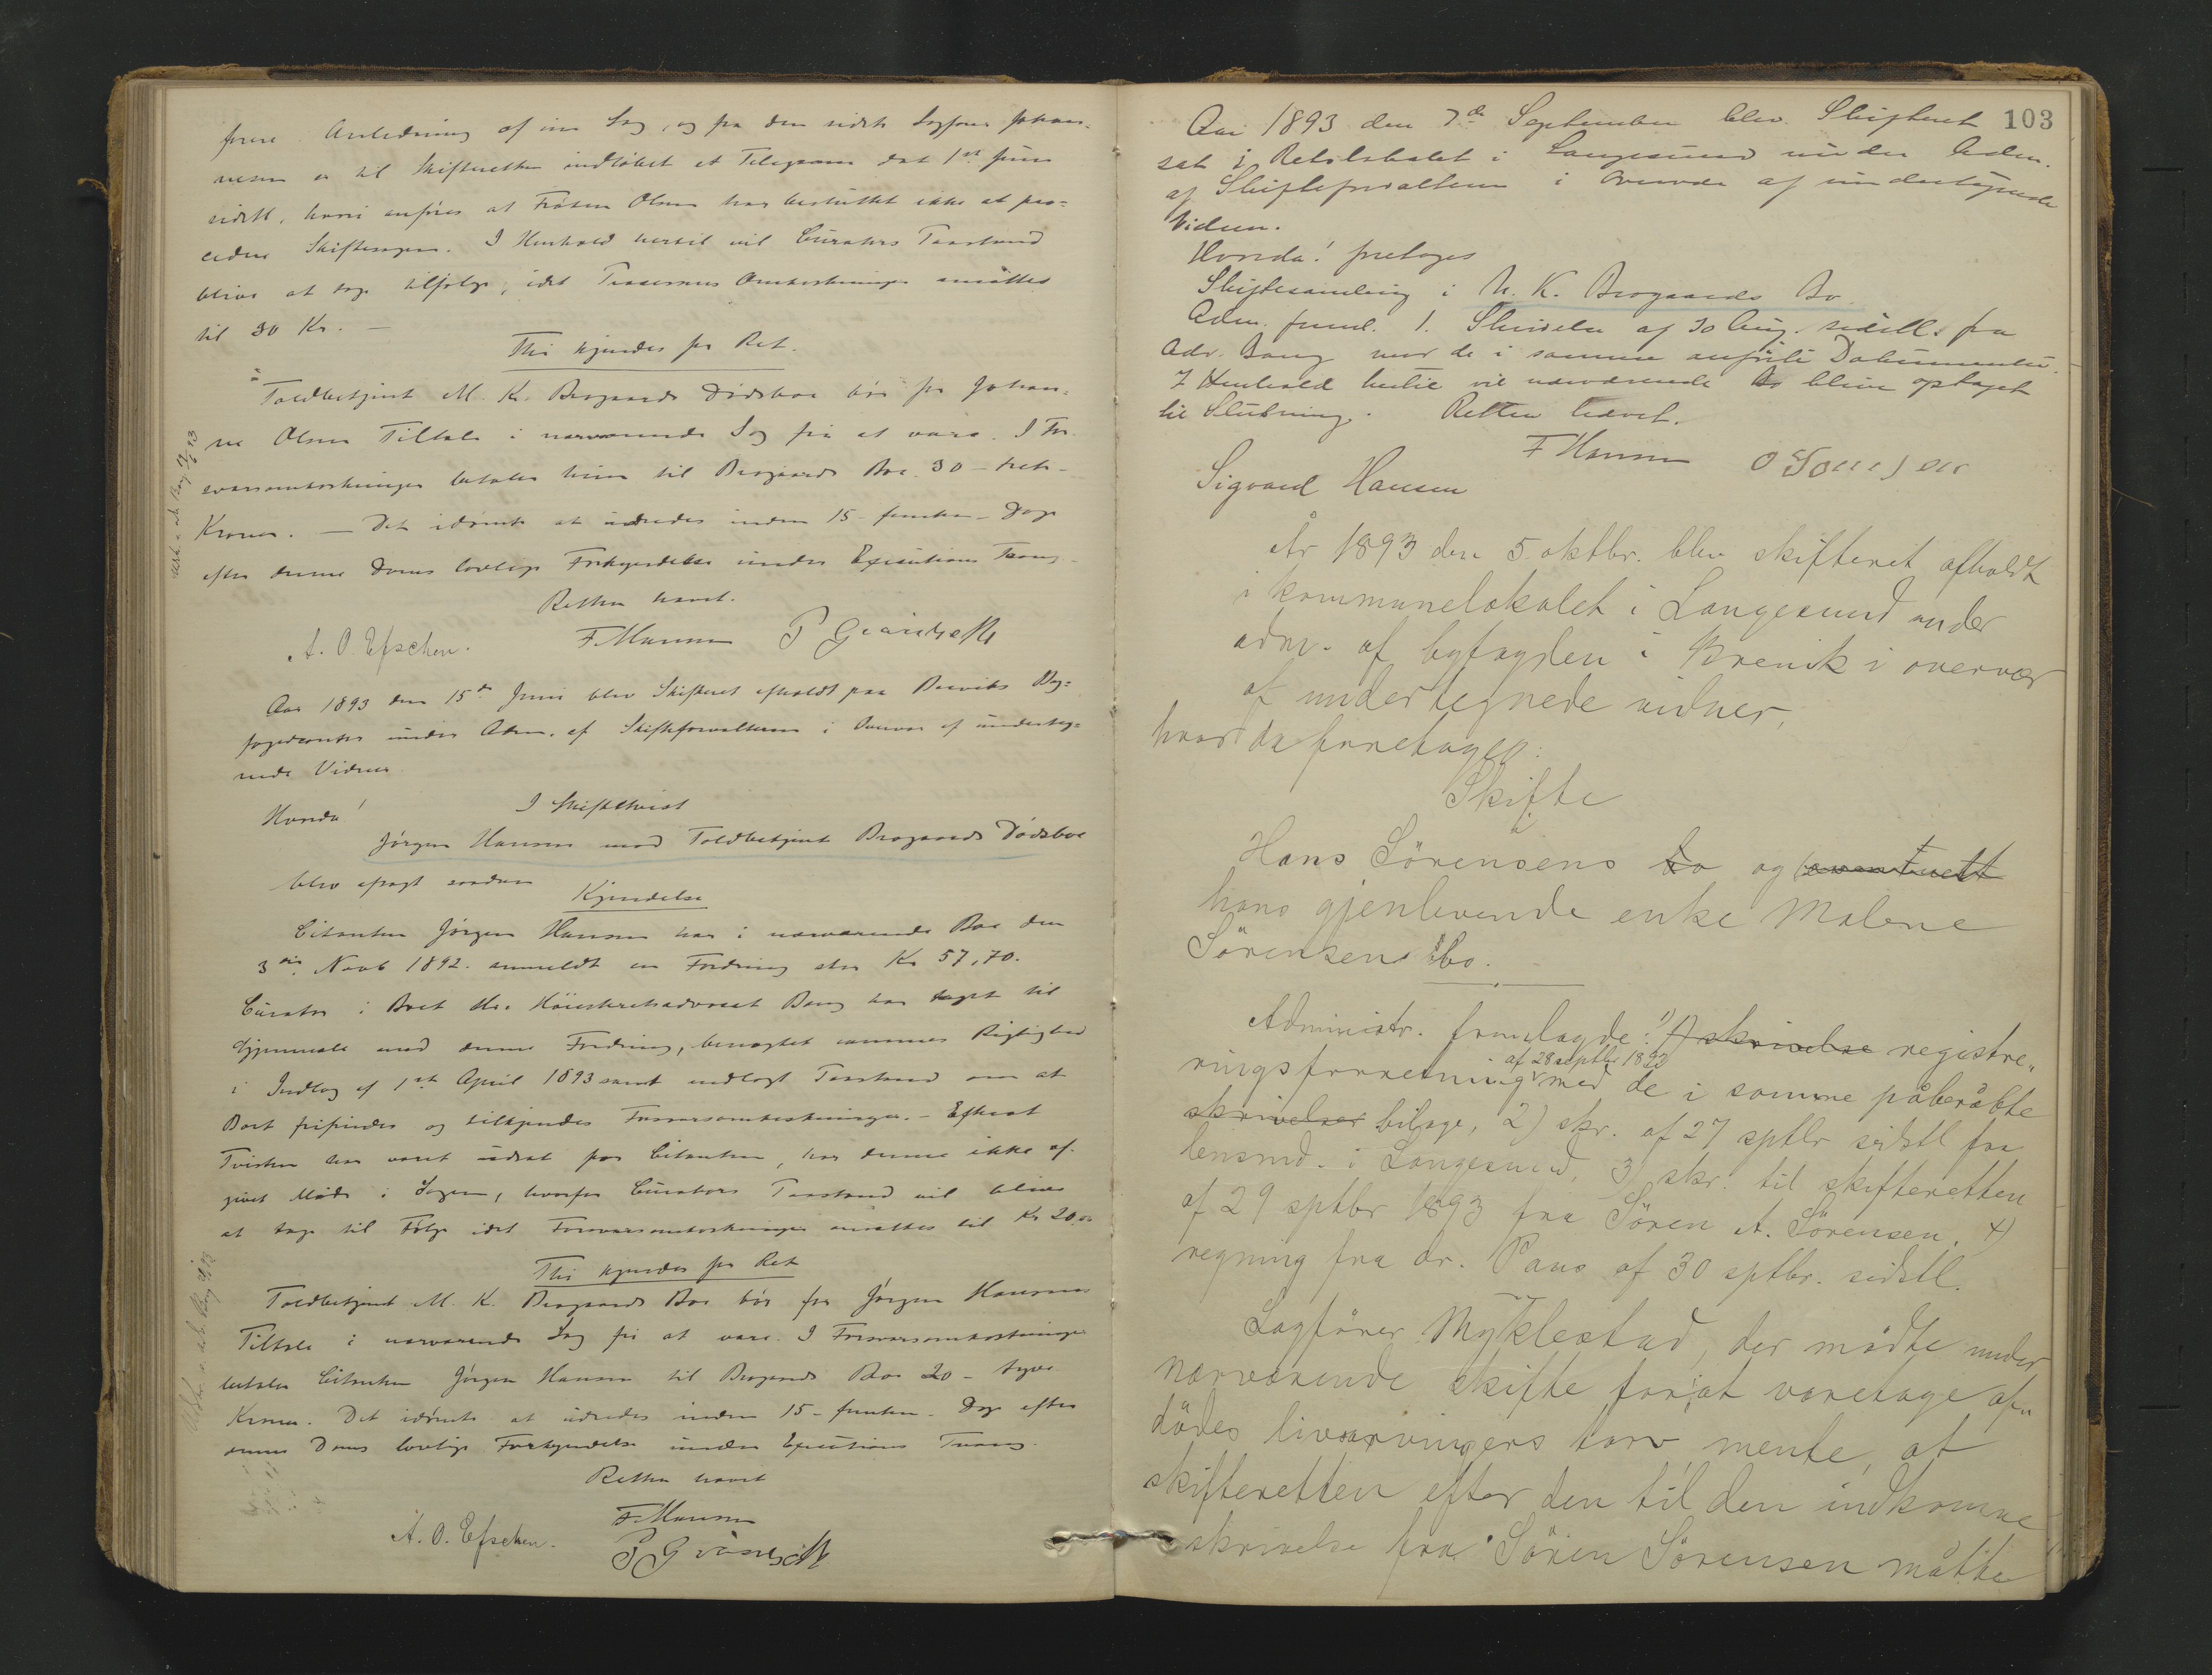 førere Anledning af in Sag, og fra den sidste Sagfører Johan-
nesen er til Skifteretten indløbet et Telegram dat 1ste Juni
sidstl, hvori anføres at Frøken Olsen har besluttet ikke at pro=
cedere Skiftesagen. I Henhold hertil vil Curators Paastand
blive at tage tilfølge, idet Processens Omkostninger ansættes
til 30 Kr. —
Thi kjendes for Ret.
Toldbetjent M. K. Brogaards Dødsboe bør for Johan-
ne Olsens Tiltale i nærværende Sag fri at være. I For-
svarsomkostninger betaler hun til Brogaards Boe 30 - treti -
Kroner. — Det idømte at udredes inden 15 - femten - Dage
efter denne Doms lovlige Forkyndelse under Execútions Tvang.
Retten hævet.
A. O. Efschen. F Hansen
Aar 1893 den 15de Juni blev Skifteret afholdt paa Breviks By=
fogedcontor under Adm. af Skifteforvalteren i Overvær af underteg=
nede Vidner
Hvorda! I Skiftetvist
Jørgen Hansen mod Toldbetjent Brogaards Dødsboe
blev afsagt saadan
Kjendelse
Citanten Jørgen Hansen har i nærværende Boe den
3die Novb 1892. anmeldt en Fordring stor Kr 57,70.
Curator i Boet Hr. Høiesteretsadvocat Bang har taget til
Gjenmæle mod denne Fordring, benægtet sammes Rigtighed
i Indlæg af 1ste April 1893 samt nedlagt Paastand om at
Boet frifindes og tilkjendes Forsvarsomkostninger. - Efterat
Tvisten har været udsat for Citanten, har denne ikke af-
givet Møde i Sagen, hvorfor Curators Paastand vil blive
at tage til Følge idet Forsvarsomkostninger ansættes til Kr 20,00
Thi kjendes for Ret
Toldbetjent M. K. Brogaards Boe bør for Jørgen Hansens
Tiltale i nærværende Sag fri at være. I Forsvarsomkostninger
betaler Citanten Jørgen Hansen til Brogaards Boe 20 - tyve
Kroner. Det idømte at udredes inden 15 - femten - Dage efter
denne Doms lovlige Forkyndelse under Execútions Tvang.
Retten hævet
F Hansen
A. O. Efschen.
103
Aar 1893 den 7de September blev Skifteret
sat i Retslokalet i Langesund under Adm.
af Skifteforvalteren i Overvær af undertegnede
Vidner.
Hvorda! foretoges
Skiftesamling i M. K. Brogaards Bo.
Adm. freml. 1. Skrivelse af 30 Aug. sidstl. fra
Adv. Bang med de i samme anførte Dokumenter.
I Henhold hertil vil nærværende Bo blive optaget
til Slutning. Retten hævet.
F Hansen
Sigvard Hansen
År 1893 den 5. oktbr. blev skifteret afholdt
i kommunelokalet i Langesund under
adm. af byfogden i Brevik i overvær
af undertegnede vidner,
hvor da foretages:
Skifte
i
Hans Sörensens bo og eventuelt
hans gjenlevende enke Malene
Sörensens bo.
Administr. fremlagde: 1) 1) skrivelse registre„
ringsforretning af 28 septbr 1893 med de i samme påberåbte
skrivelser bilage, 2) skr. af 27 sptbr sidstl fra
lensmd. i Langesund, 3) skr. til skifteretten
af 29 sptbr 1893 fra Sören A. Sörensen. 4)
regning fra dr. Paus af 30 sptbr. sidstl.
Sagförer Myklestad, der mödte under
nærværende skifte for at varetage af„
dödes livsarvingers tarv mente, at
skifteretten efter den til den indkomne
skrivelse fra Sören Sörensen måtte